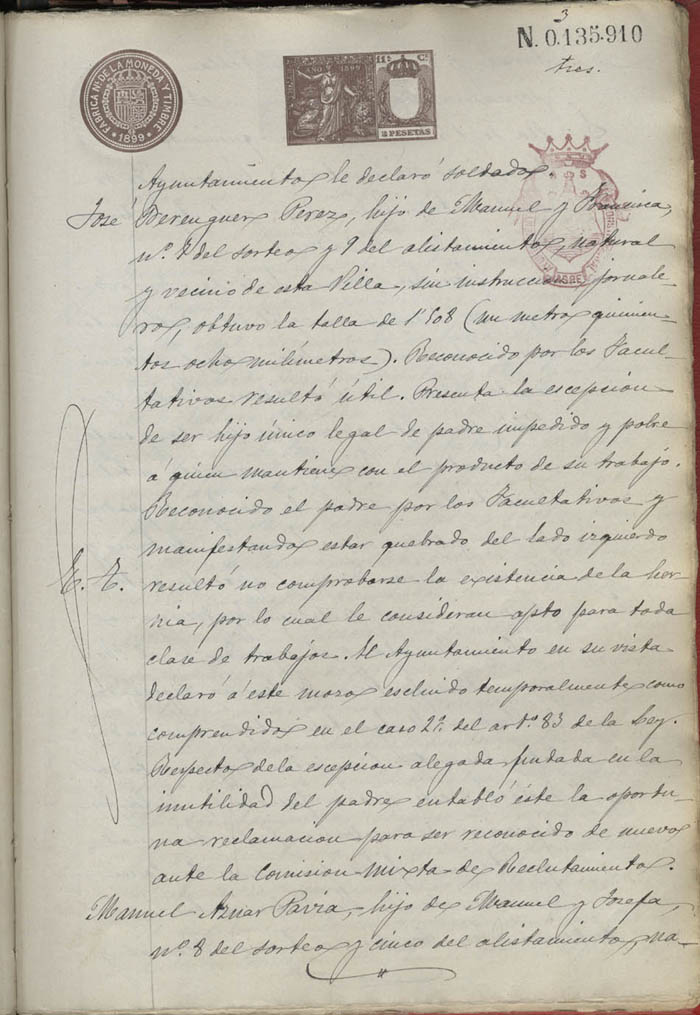 3
N. 0.135.910
tres.
FABRICA NL DE LA MONEDA Y TIMBRE
1899
AÑO 1899
11ª C.
2 PESETAS
Ayuntamiento le declaró soldado.
José Berenguer Perez, hijo de Manuel y Francisca,
nº. 7 del sorteo y 9 del alistamiento, natural
y vecino de esta Villa, sin instruccion, jornale-
ro, obtuvo la talla de 1'508 (un metro quinien-
tos ocho milímetros). Reconocido por los Facul-
tativos resultó útil. Presenta la escepcion
de ser hijo único legal de padre impedido y pobre
á quien mantiene con el producto de su trabajo.
Reconocido el padre por los Facultativos y
manifestando estar quebrado del lado izquierdo
E. T. resultó no comprobarse la existencia de la her-
nia, por lo cual le consideran apto para toda
clase de trabajos. El Ayuntamiento en su vista
declaró á este mozo escluido temporalmente como
comprendido en el caso 2º. del artº. 83 de la Ley.
Respecto de la escepcion alegada fundada en la
inutilidad del padre entabló éste la oportu-
na reclamacion para ser reconocido de nuevo
ante la Comision Mixta de Reclutamiento.
Manuel Aznar Pavia, hijo de Manuel y Josefa,
nº. 8 del sorteo y cinco del alistamiento, na-